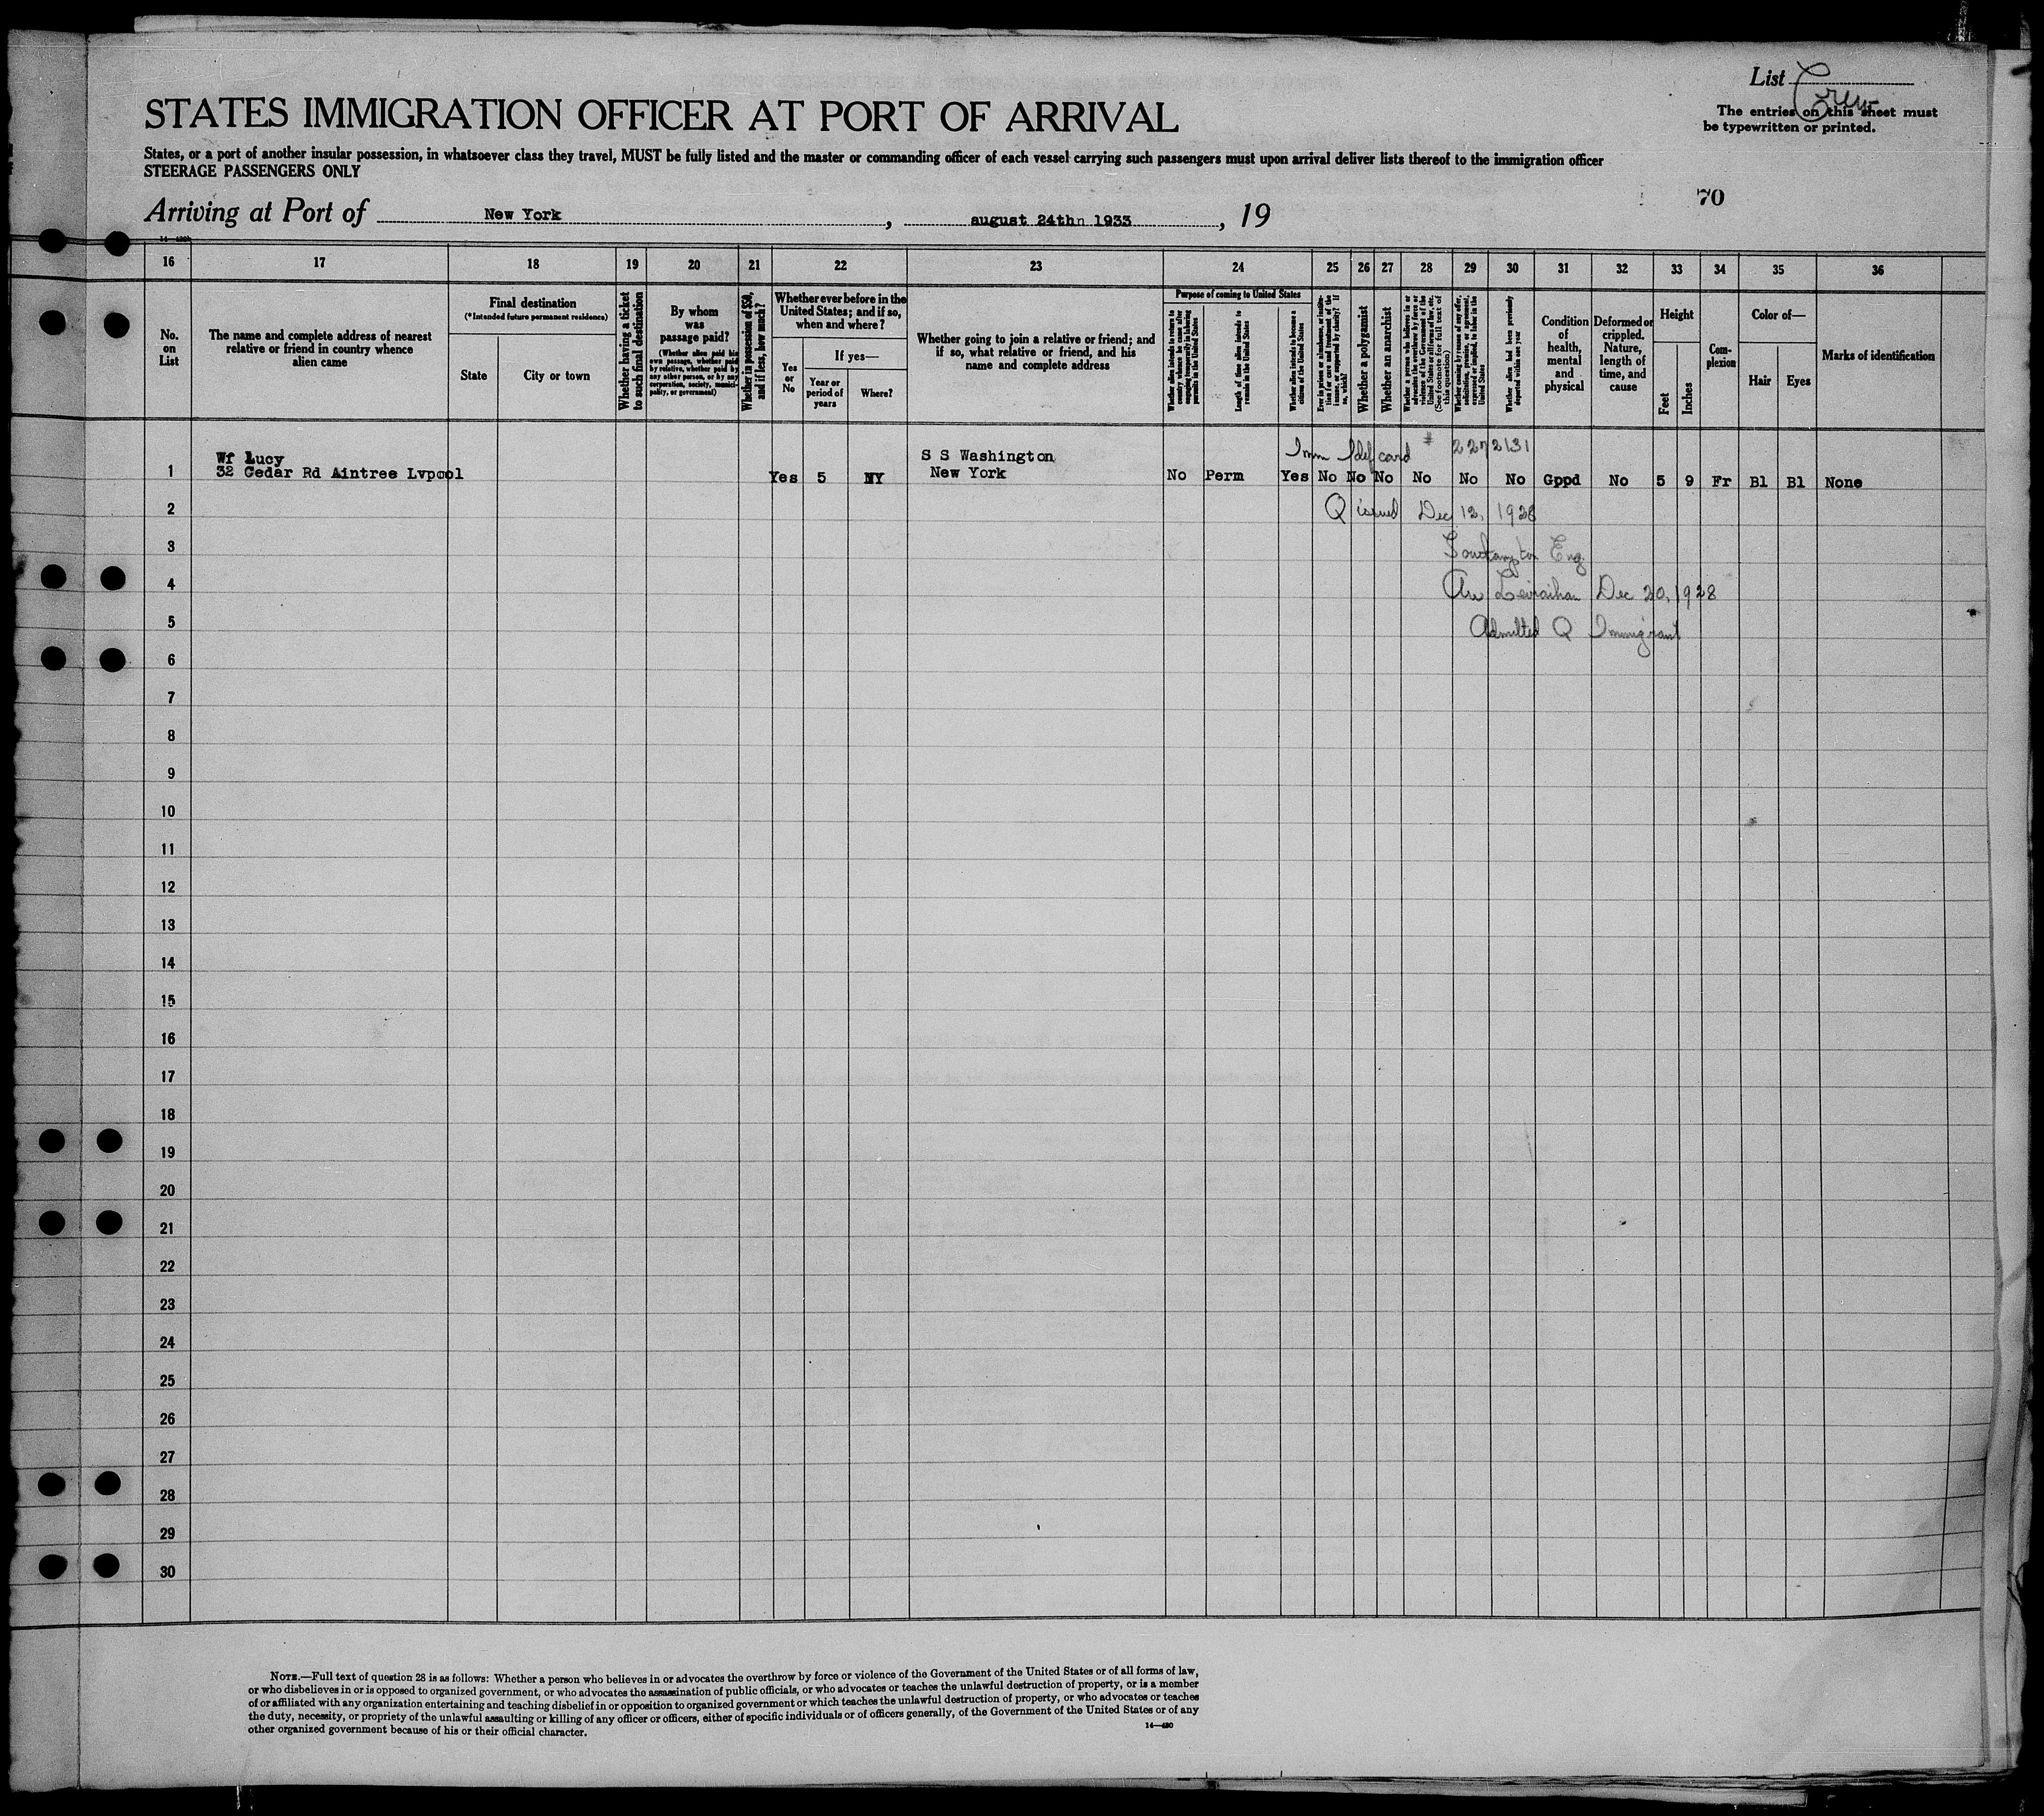 List Crew
The entries on this sheet must
be typewritten or printed.
STATES IMMIGRATION OFFICER AT PORT OF ARRIVAL
States, or a port of another insular possession, in whatsoever class they travel, MUST be fully listed and the master or commanding officer of each vessel carrying such passengers must upon arrival deliver lists thereof to the immigration officer
STEERAGE PASSENGERS ONLY
70
Arriving at Port of New York, august 24thn 1933, 19
16 17 18 19 20 21 22 23 24 25 26 27 28 29 30 31 32 33 34 35 36
No.
on
List
The name and complete address of nearest
relative or friend in country whence
alien came
Final destination
(*Intended future permanent residence)
State
City or town
Whether having a ticket
to such final destination
By whom
was
passage paid?
(Whether alien paid his
own passage, whether paid
by relative, whether paid by
any other person, or by any
corporation, society, munici-
pality, or government)
Whether in possession of $50,
and if less, how much?
Whether ever before in the
United States; and if so,
when and where?
Yes
or
No
If yes—
Year or
period of
years
Where?
Whether going to join a relative or friend; and
if so, what relative or friend, and his
name and complete address
Purpose of coming to United States
Whether alien intends to return to
country whence he came after
engaging temporarily in laboring
pursuits in the United States
Length of time alien intends to
remain in the United States
Whether alien intends to become a
citizen of the United States
Ever in prison or almshouse, or institu-
tion for care and treatment of the
insane, or supported by charity? If
so, which?
Whether a polygamist
Whether an anarchist
Whether a person who believes in or
advocates the overthrow by force or
violence of the Government of the
United States or all forms of law, etc.
(See footnote for full text of
this question)
Whether coming by reason of any offer,
solicitation, promise, or agreement,
expressed or implied, to labor in the
United States
Whether alien had been previously
deported within one year
Condition
of
health,
mental
and
physical
Deformed or
crippled.
Nature,
length of
time, and
cause
Height
Feet
Inches
Com-
plexion
Color of—
Hair
Eyes
Marks of identification
Imm Idf card # 2272131
Wf Lucy S S Washington
1 32 Cedar Rd Aintree Lvpool Yes 5 NY New York No Perm Yes No No No No No No Gppd No 5 9 Fr Bl Bl None
2 Q issued Dec 12, 1928
3 Southampton Eng.
4 Arr Leviathan Dec 20, 1928
5 Admitted Q Immigrant
6
7
8
9
10
11
12
13
14
15
16
17
18
19
20
21
22
23
24
25
26
27
28
29
30
NOTE.—Full text of question 28 is as follows: Whether a person who believes in or advocates the overthrow by force or violence of the Government of the United States or of all forms of law,
or who disbelieves in or is opposed to organized government, or who advocates the assassination of public officials, or who advocates or teaches the unlawful destruction of property, or is a member
of or affiliated with any organization entertaining and teaching disbelief in or opposition to organized government or which teaches the unlawful destruction of property, or who advocates or teaches
the duty, necessity, or propriety of the unlawful assaulting or killing of any officer or officers, either of specific individuals or of officers generally, of the Government of the United States or of any
other organized government because of his or their official character.
14—430